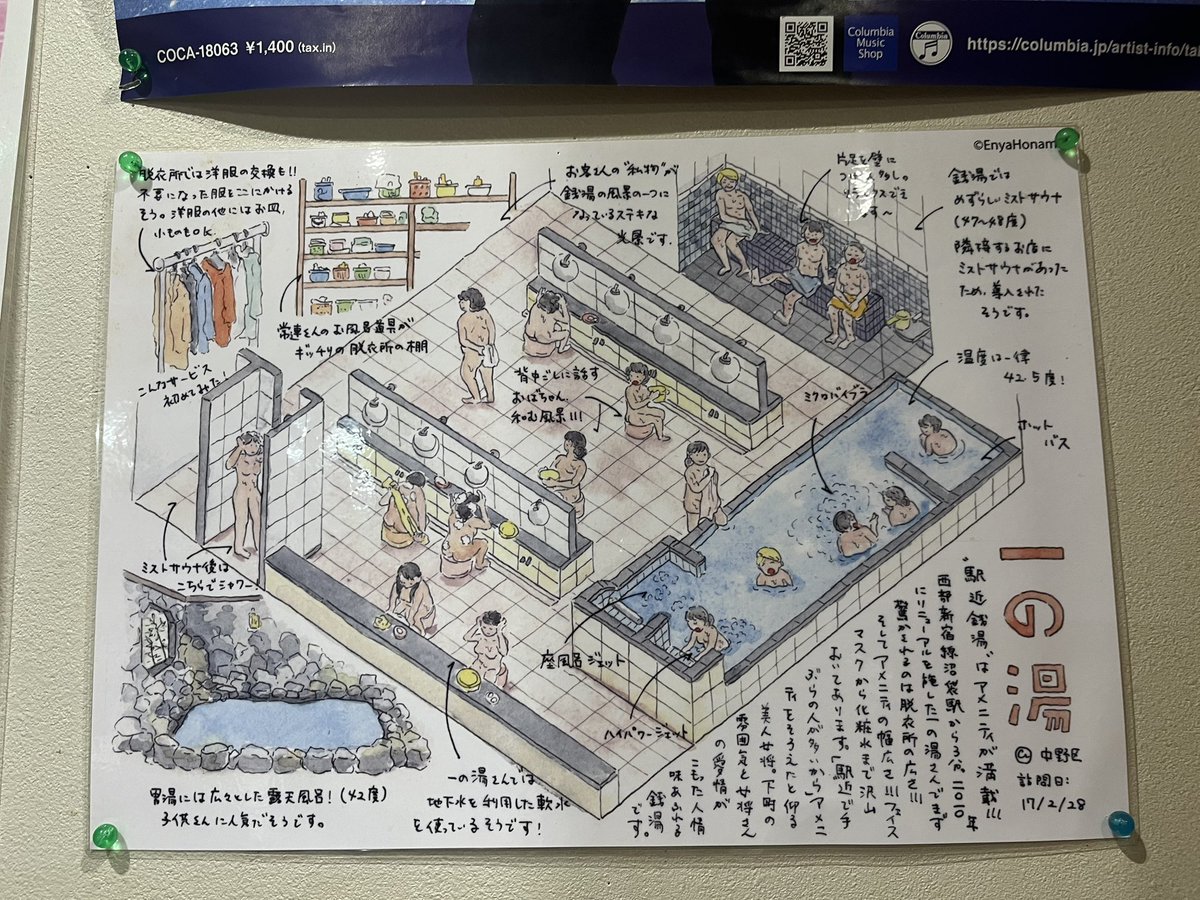 COCA-18063 ¥1,400 (tax.in)
Columbia
Music
Shop
Columbia
https://columbia.jp/artist-info/ta
©EnyaHonam
脱衣所では洋服の交換も!!
不要になった服をここにかける
そう。洋服の他にはお皿,
小ものもOK.
こんなサービス
初めてみた!
お客さんの"私物"が
銭湯の風景の一つに
なっているステキな
光景です.
常連さんのお風呂道具が
ギッチリの脱衣所の棚
片足を壁に
銭湯では
めずらしいミストサウナ
(47〜48度)
隣接するお店に
ミストサウナがあった
ため、導入された
そうです。
背中ごしに話す
おばちゃん.
和む風景!!!
温度は一律
42.5度!
ミクロバイブラ
ホット
バス
ミストサウナ後は
こちらでシャワー
座風呂ジェット
ハイパワージェット
一の湯さんでは
地下水を利用した軟水
を使っているそうです!
男湯には広々とした露天風呂!(42度)
子供さんに人気だそうです。
一の湯
中野区
訪問日:
17/2/28
"駅近銭湯"はアメニティが満載!!!
西部新宿線沼袋駅から3分。2010年
にリニューアルを施した一の湯さんでまず
驚かされるのは脱衣所の広さ!!!
そしてアメニティの幅広さ!!!フェイス
マスクから化粧水まで沢山
おいてあります。「駅近で手
ぶらの人が多いから」アメニ
ティをそろえたと仰る
美人女将。下町の
雰囲気と女将さん
の愛情が
こもった人情
味あふれる
銭湯
です。